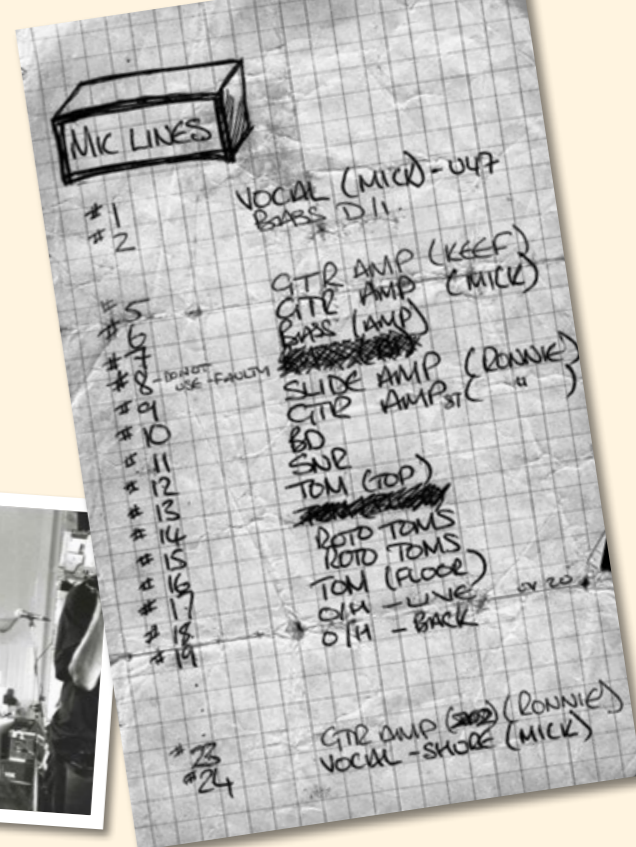 MIC LINES
#1 VOCAL (MICK) - U47
#2 BASS D.I.
#5 GTR AMP (KEEF)
#6 GTR AMP (MICK)
#7 BASS (AMP)
#8 - DO NOT
USE - FAULTY
#9 SLIDE AMP (RONNIE)
#10 GTR AMP ST ( " )
#11 BD
#12 SNR
#13 TOM (TOP)
#14
#15 ROTO TOMS
#16 ROTO TOMS
#17 TOM (FLOOR)
#18 O/H - LIVE
#19 O/H - BACK
#23 GTR AMP (RONNIE)
#24 VOCAL - SHURE (MICK)